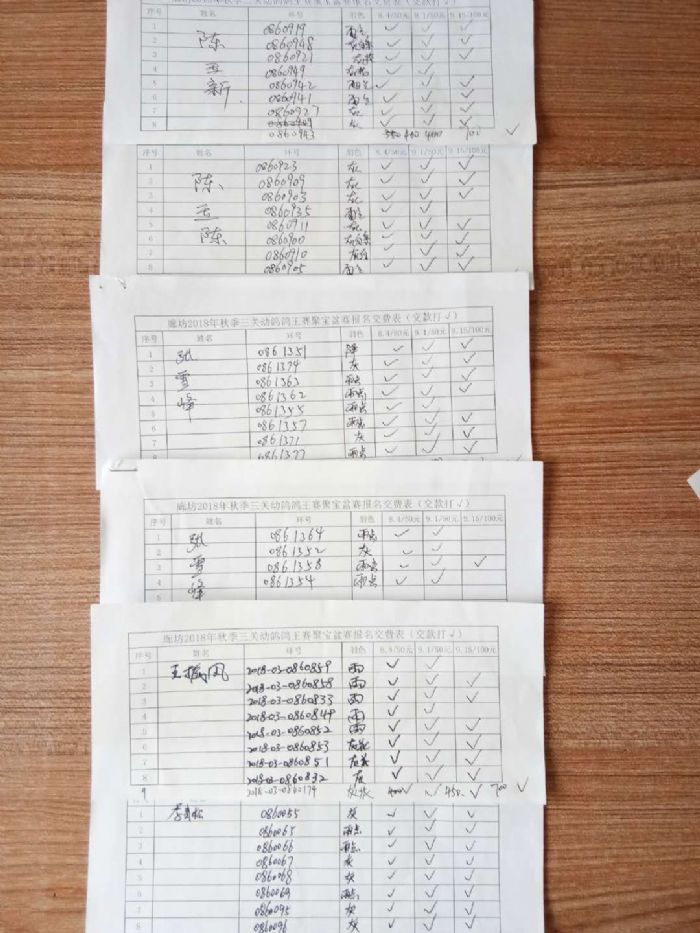 序号 姓名 环号 羽色 8.4/50元 9.1/50元 9.15/100元
1 0860919 雨点 ✓ ✓ ✓
2 陈 0860948 ✓ ✓ ✓
3 0860921 ✓ ✓ ✓
4 王 0860949 ✓ ✓
5 新 0860942 雨点 ✓ ✓ ✓
6 0860941 雨点 ✓ ✓ ✓
7 0860927 灰 ✓ ✓ ✓
8 灰 ✓ ✓ ✓
0860943 400 700 ✓
序号 姓名 环号 羽色 8.4/50元 9.1/50元 9.15/100元
1 0860923 灰 ✓ ✓ ✓
2 陈 0860909 灰 ✓ ✓ ✓
3 0860903 灰 ✓ ✓ ✓
4 王 0860935 雨点 ✓ ✓ ✓
5 0860911 灰 ✓ ✓ ✓
6 陈 0860900 ✓ ✓ ✓
7 0860910 ✓ ✓ ✓
8 0860905 雨点 ✓ ✓ ✓
廊坊2018年秋季三关动鸽鸽王赛聚宝盆赛报名交费表（交款打√）
序号 姓名 环号 羽色 8.4/50元 9.1/50元 9.15/100元
1 张 0861351 降 ✓ ✓ ✓
2 0861374 灰 ✓ ✓ ✓
3 雪 0861363 雨点 ✓ ✓ ✓
4 0861362 雨点 ✓ ✓ ✓
5 峰 0861355 雨点 ✓ ✓
6 0861357 雨点 ✓ ✓ ✓
7 0861371 灰 ✓ ✓ ✓
8 0861377 雨点 ✓ ✓ ✓
廊坊2018年秋季三关动鸽鸽王赛聚宝盆赛报名交费表（交款打√）
序号 姓名 环号 羽色 8.4/50元 9.1/50元 9.15/100元
1 张 0861364 雨点 ✓ ✓
2 0861352 灰 ✓ ✓
3 雪 0861358 雨点 ✓ ✓ ✓
4 0861354 雨点 ✓ ✓
5 峰
廊坊2018年秋季三关动鸽鸽王赛聚宝盆赛报名交费表（交款打√）
序号 姓名 环号 羽色 8.4/50元 9.1/50元 9.15/100元
1 王振凤 2018-03-0860859 雨 ✓ ✓
2 2018-03-0860858 雨 ✓ ✓ ✓
3 2018-03-0860833 雨 ✓ ✓ ✓
4 2018-03-0860849 雨 ✓ ✓
5 2018-03-0860852 雨 ✓ ✓ ✓
6 2018-03-0860853 灰花 ✓ ✓ ✓
7 2018-03-0860851 灰花 ✓ ✓ ✓
8 2018-03-0860832 灰 ✓ ✓ ✓
9 2018-03-0860174 灰花 400 ✓ ✓ 450 ✓ 700 ✓
1 0860055 灰 ✓ ✓ ✓
2 0860065 雨点 ✓ ✓ ✓
3 0860066 雨点 ✓ ✓ ✓
4 0860067 灰 ✓ ✓ ✓
5 0860068 灰 ✓ ✓ ✓
6 0860069 雨点 ✓ ✓ ✓
7 0860095 灰 ✓ ✓ ✓
8 0860096 灰 ✓ ✓ ✓